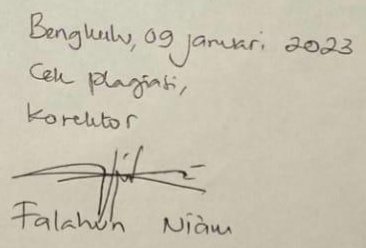 Bengkulu, 09 januari 2023
Cek plagiasi,
Korektor
Falahun Niam